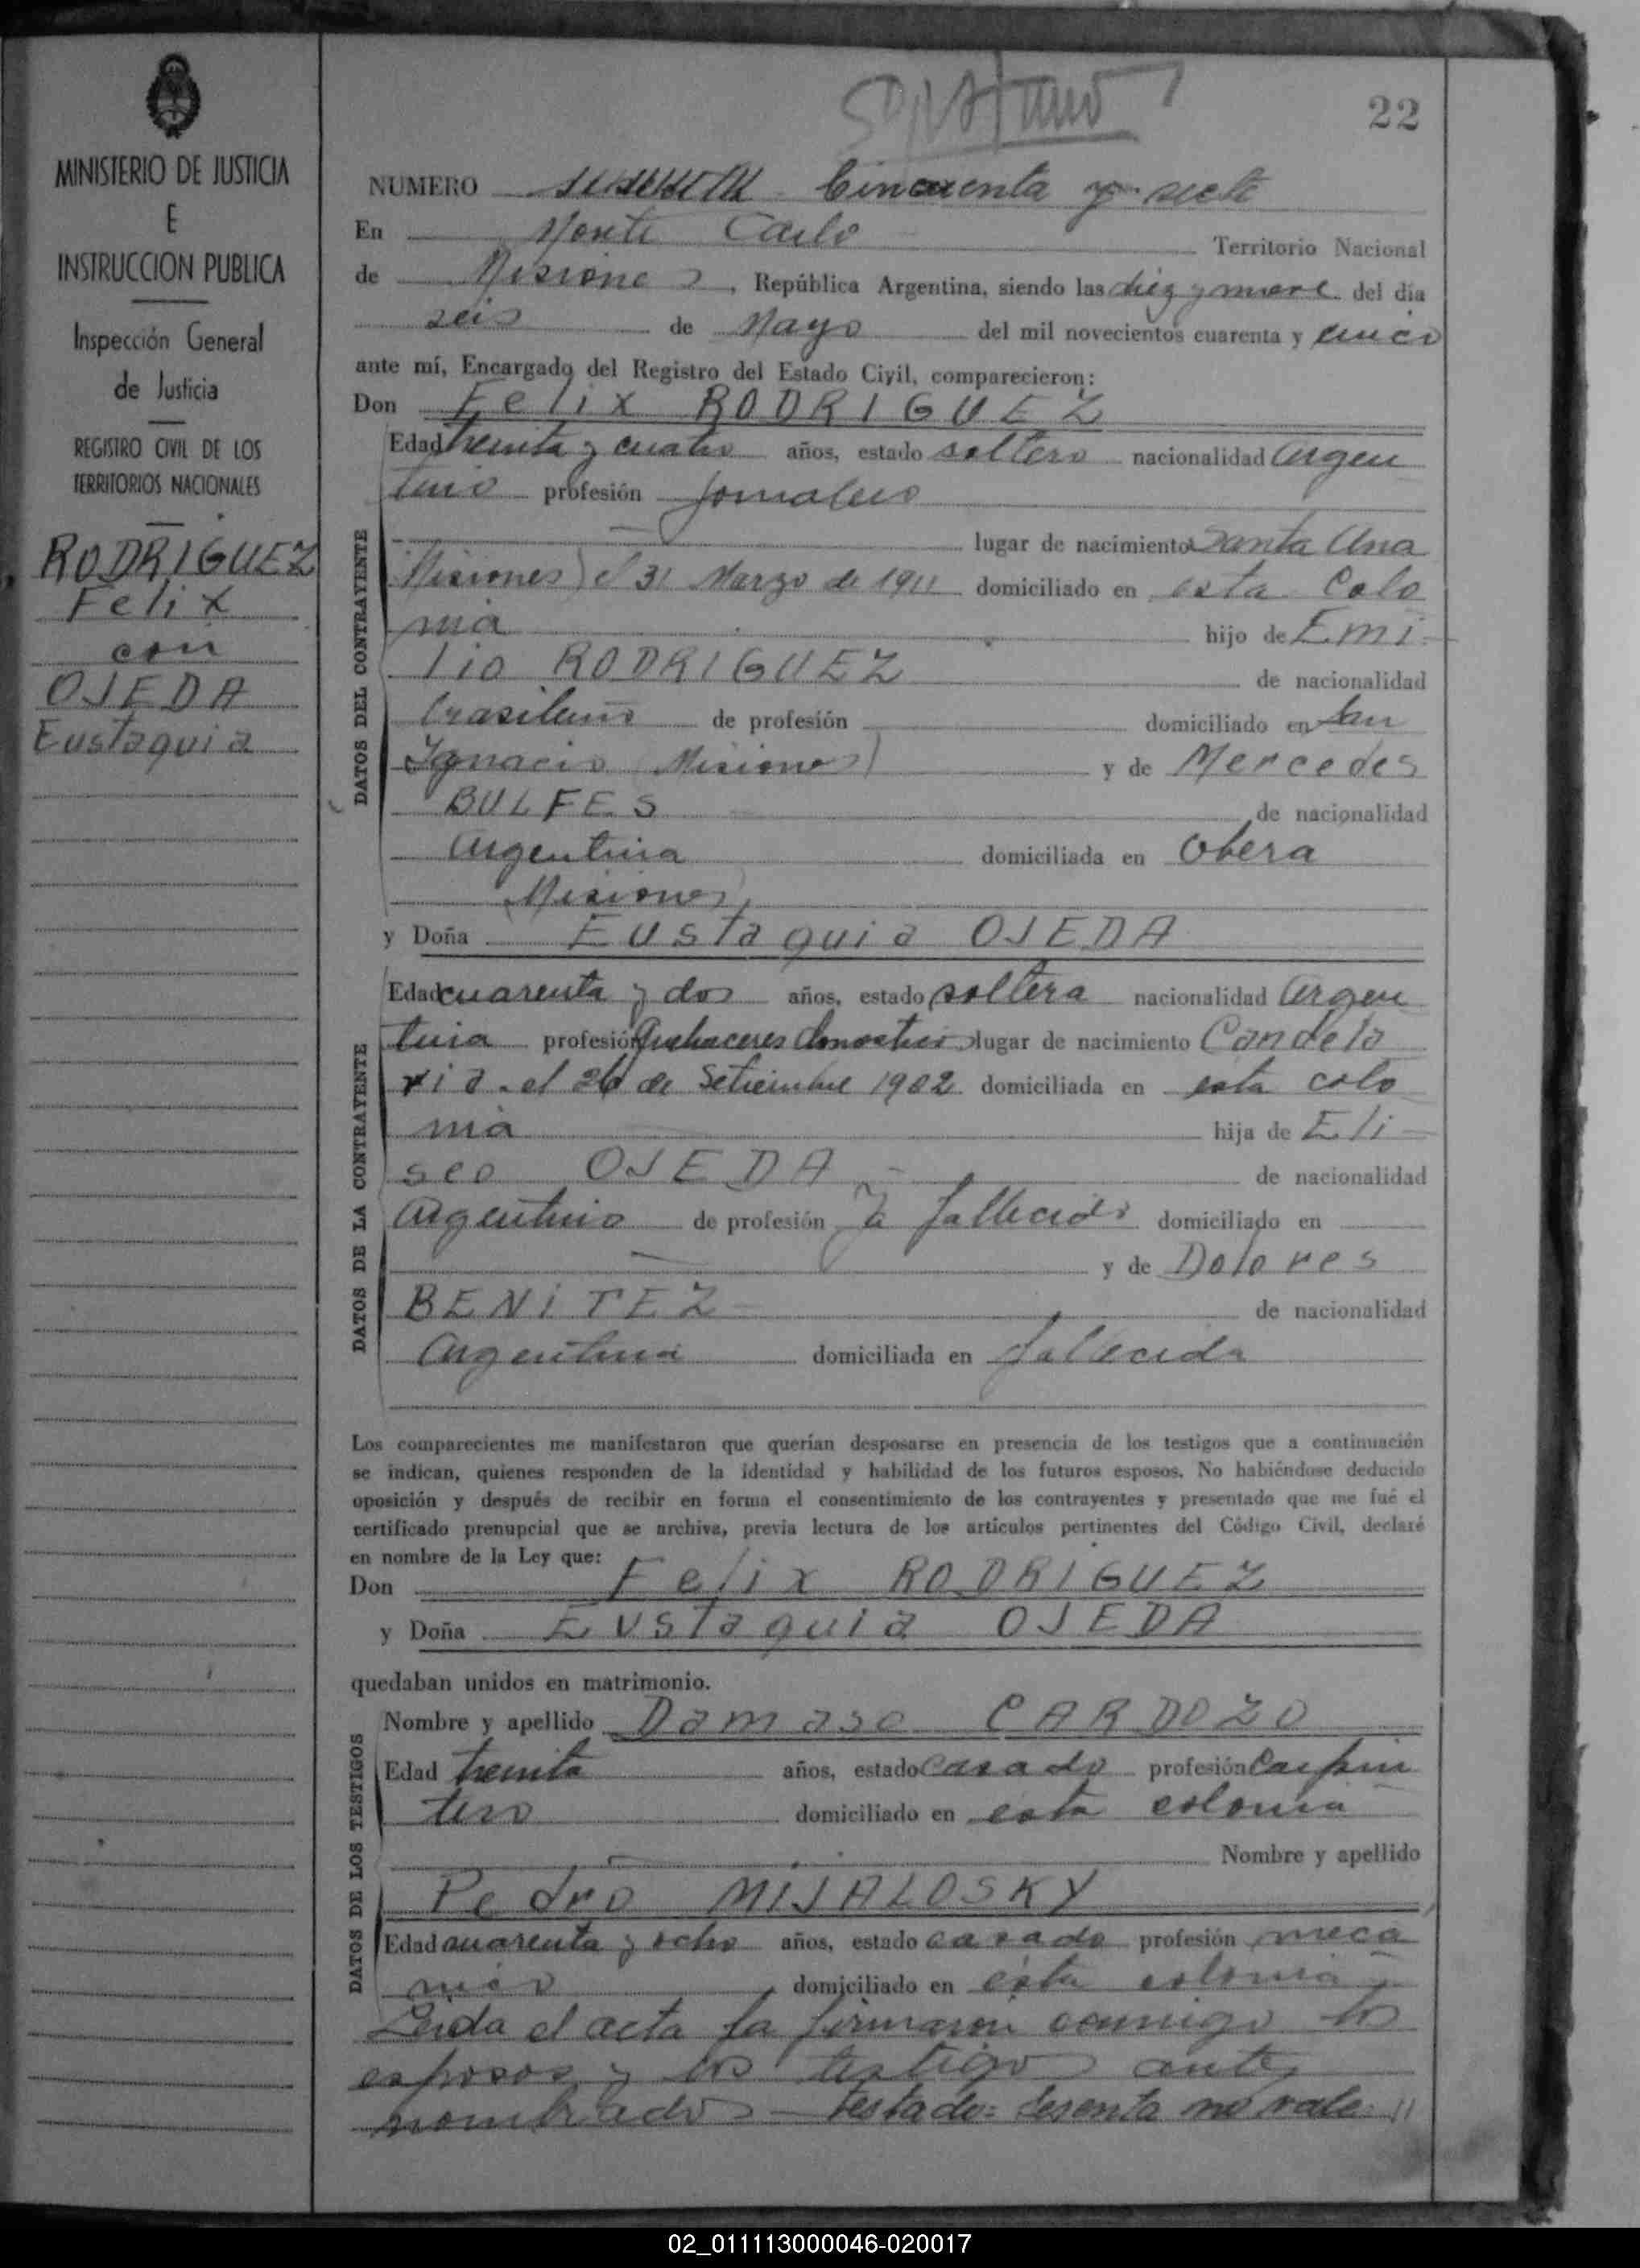 22
MINISTERIO DE JUSTICIA
E
INSTRUCCION PUBLICA
Inspección General
de Justicia
REGISTRO CIVIL DE LOS
TERRITORIOS NACIONALES
RODRIGUEZ
Felix
con
OJEDA
Eustaquia
NUMERO Cincuenta y siete
En Monte Carlo Territorio Nacional
de Misiones, República Argentina, siendo las diez y nueve del día
seis de Mayo del mil novecientos cuarenta y cinco
ante mí, Encargado del Registro del Estado Civil, comparecieron:
Don Felix RODRIGUEZ
DATOS DEL CONTRAYENTE
Edad treinta y cuatro años, estado soltero nacionalidad argen
tino profesión Jornalero
lugar de nacimiento Santa Ana
Misiones) el 31 Marzo de 1911 domiciliado en esta Colo
nia hijo de Emi
lio RODRIGUEZ de nacionalidad
brasileno de profesión domiciliado en San
Ignacio (Misiones) y de Mercedes
BULFES de nacionalidad
argentina domiciliada en Obera
(Misiones)
y Doña Eustaquia OJEDA
DATOS DE LA CONTRAYENTE
Edad cuarenta y dos años, estado soltera nacionalidad argen
tina profesión Quehaceres domestico lugar de nacimiento Candela
ria el 26 de Setiembre 1902 domiciliada en esta colo
nia hija de Eli
seo OJEDA de nacionalidad
argentino de profesión fallecido domiciliado en
y de Dolores
BENITEZ de nacionalidad
argentina domiciliada en fallecida
Los comparecientes me manifestaron que querían desposarse en presencia de los testigos que a continuación
se indican, quienes responden de la identidad y habilidad de los futuros esposos. No habiéndose deducido
oposición y después de recibir en forma el consentimiento de los contrayentes y presentado que me fué el
certificado prenupcial que se archiva, previa lectura de los artículos pertinentes del Código Civil, declaré
en nombre de la Ley que:
Don Felix RODRIGUEZ
y Doña Eustaquia OJEDA
quedaban unidos en matrimonio.
DATOS DE LOS TESTIGOS
Nombre y apellido Damaso CARDOZO
Edad treinta años, estado casado profesión carpin
tero domiciliado en esta colonia
Nombre y apellido
Pedro MIJALOSKY
Edad cuarenta y ocho años, estado casado profesión meca
nico domiciliado en esta colonia
Leida el acta la firmaron conmigo los
esposos y los testigos antes
nombrados - testado: sesenta no vale
02_011113000046-020017